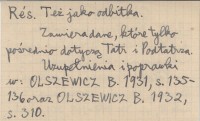 Rés. Też jako odbitka.
Zawiera dane, które tylko
pośrednio dotyczą Tatr i Podtatrza.
Uzupełnienia i poprawki
w: OLSZEWICZ B. 1931, s. 135-
136 oraz OLSZEWICZ B. 1932,
s. 310.